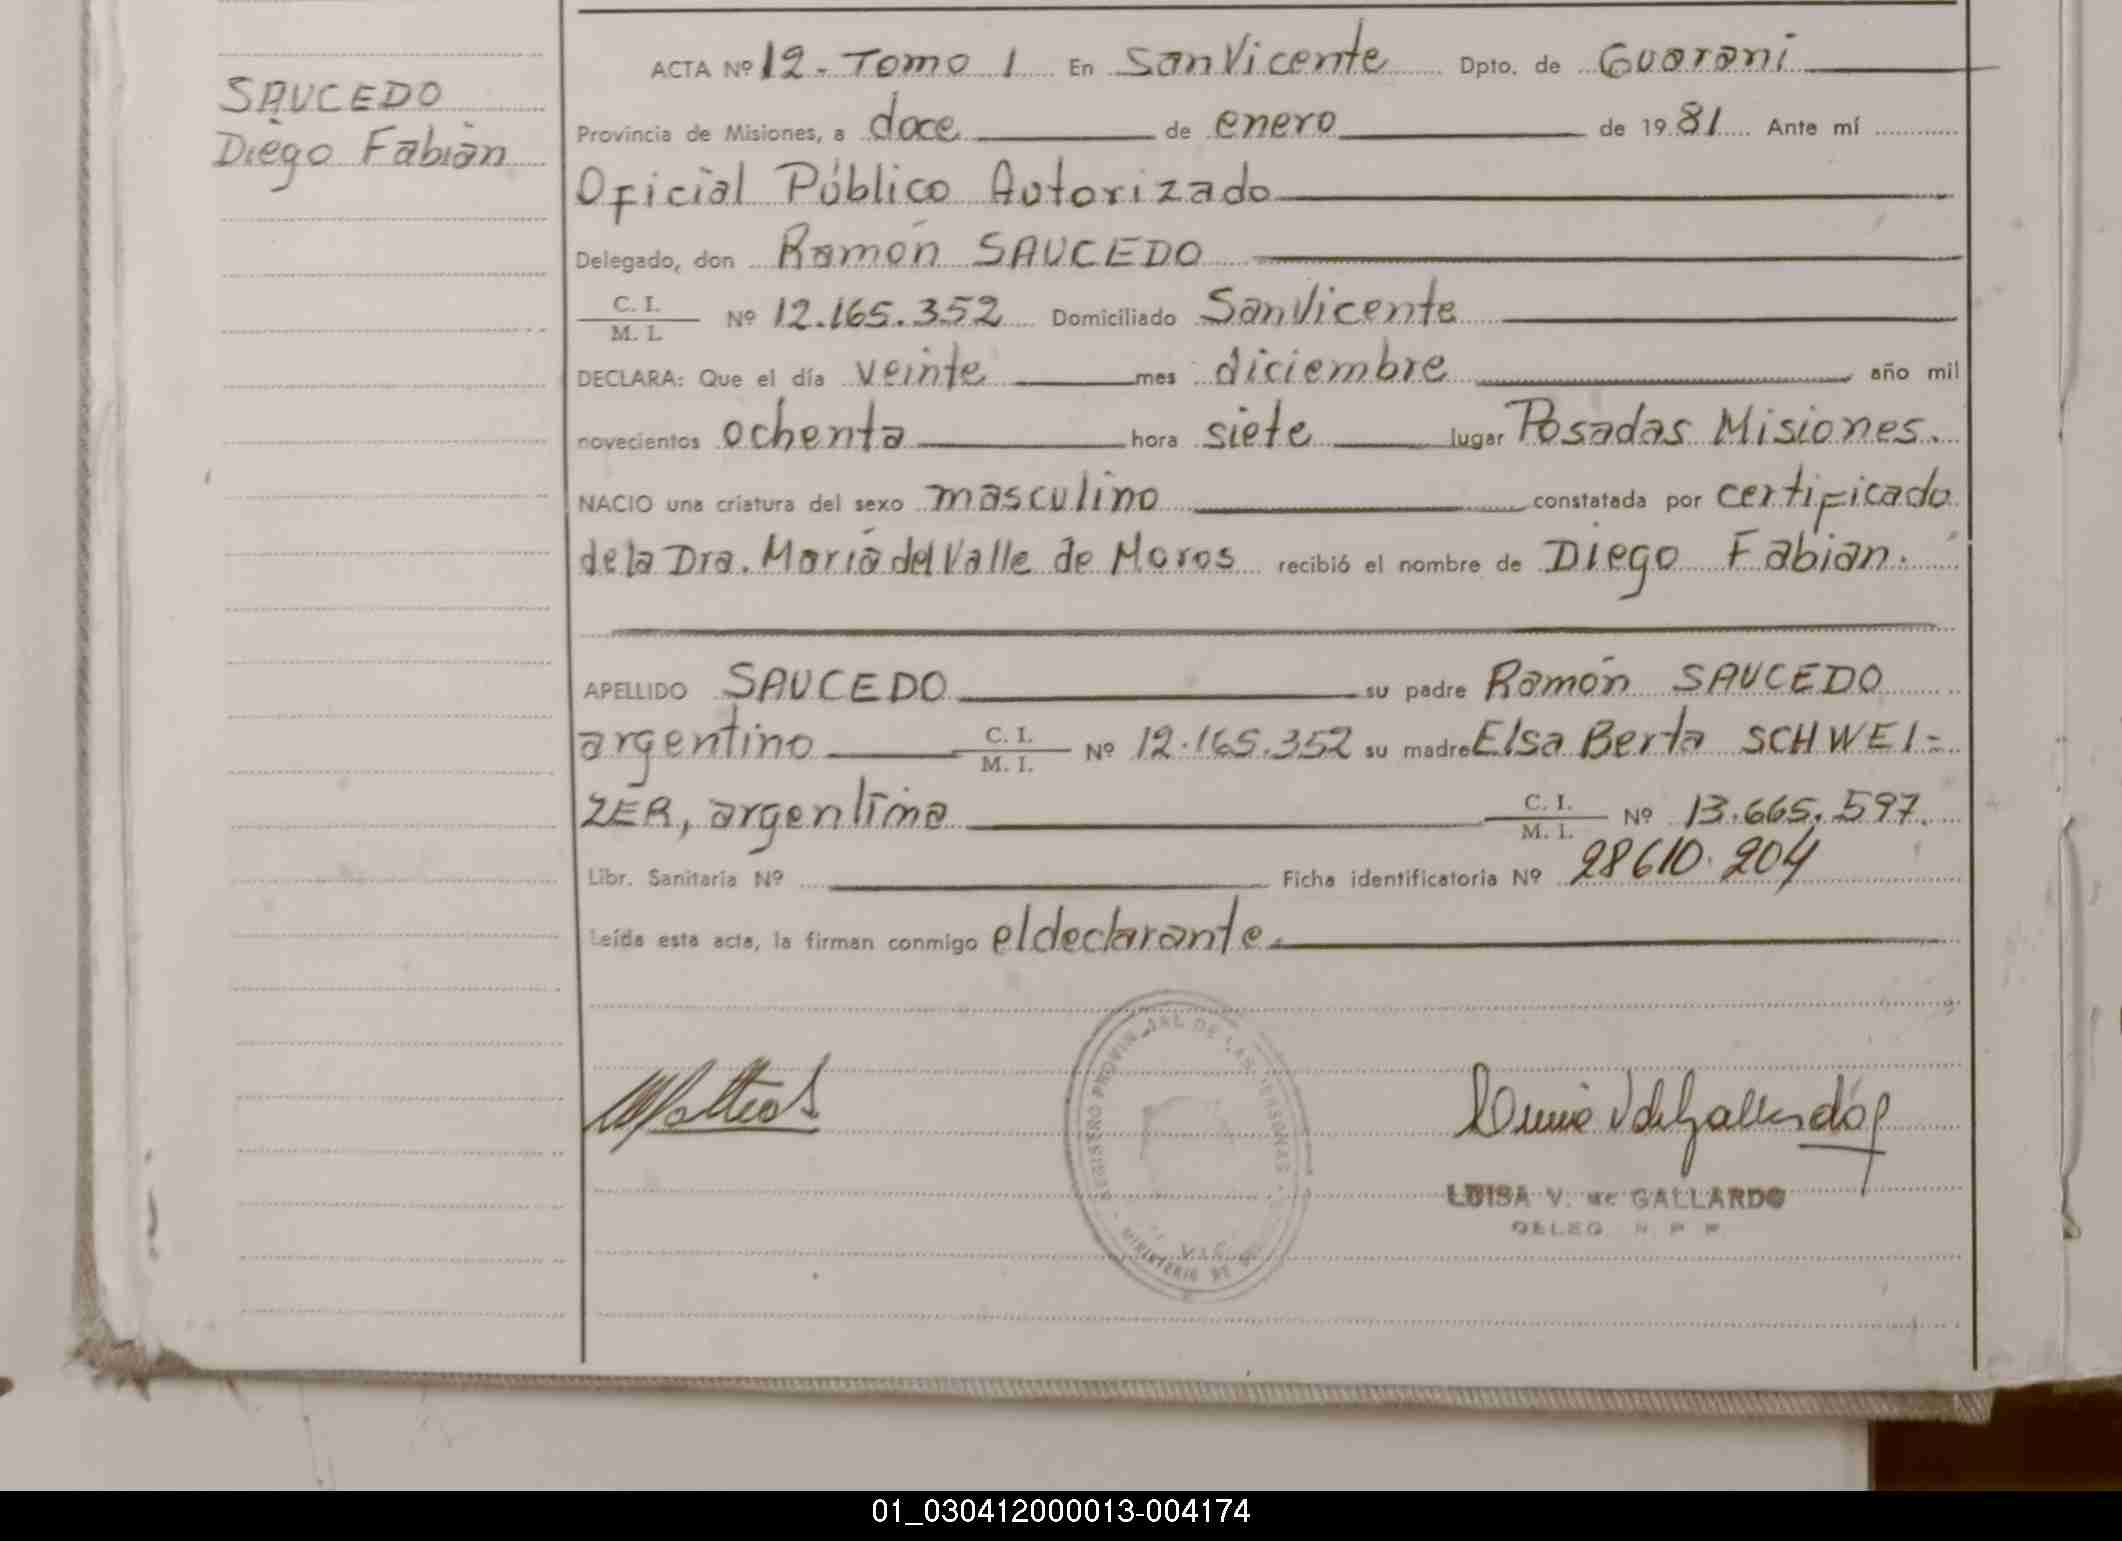 SAUCEDO
Diego Fabián
ACTA Nº 12 - Tomo 1 En San Vicente Dpto. de Guaraní
Provincia de Misiones, a doce de enero de 1981 Ante mí
Oficial Público Autorizado
Delegado, don Ramón SAUCEDO
C. I.
M. I. Nº 12.165.352 Domiciliado San Vicente
DECLARA: Que el día veinte mes diciembre año mil
novecientos ochenta hora siete lugar Posadas Misiones.
NACIO una criatura del sexo masculino constatada por certificado
de la Dra. María del Valle de Moros recibió el nombre de Diego Fabián.
APELLIDO SAUCEDO su padre Ramón SAUCEDO
argentino C. I. M. I. Nº 12.165.352 su madre Elsa Berta SCHWEI-
ZER, argentina C. I. M. I. Nº 13.665.597.
Libr. Sanitaria Nº Ficha identificatoria Nº 28610.204
Leída esta acta, la firman conmigo el declarante.
REGISTRO PROVINCIAL DE LAS PERSONAS
MINISTERIO DE
LUISA V. de GALLARDO
DELEG. R P P
01_030412000013-004174